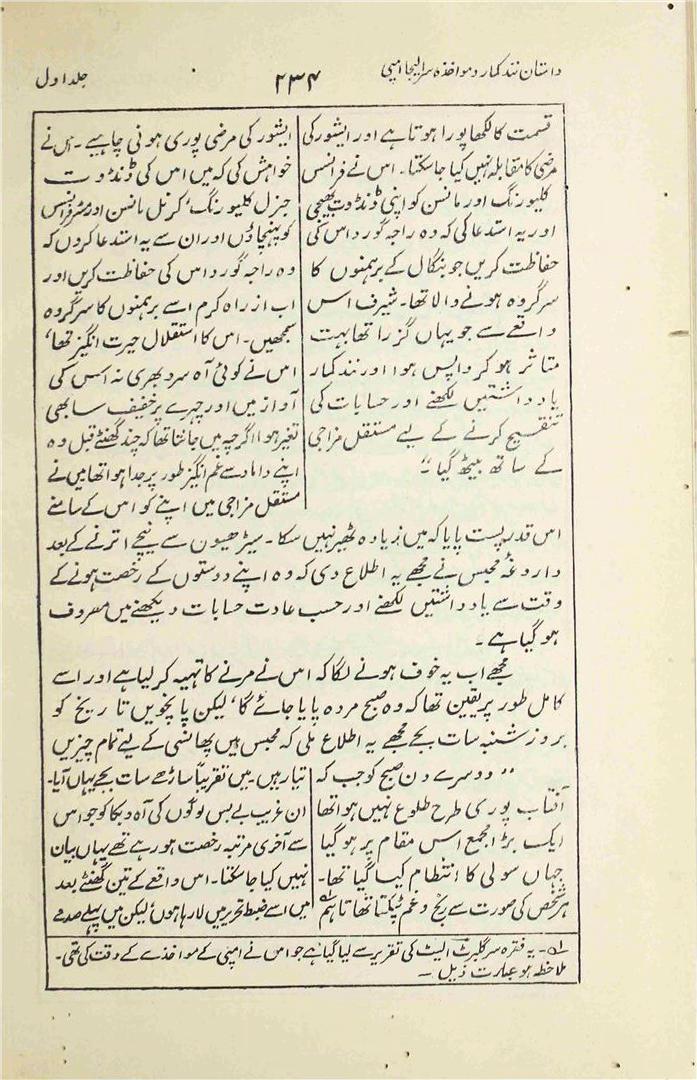 داستان نند کمار و مواخذہ سر الیجا امپی
۲۳۴
جلد اول
قسمت کا لکھا پورا ہوتا ہے اور ایشور کی
مرضی کا مقابلہ نہیں کیا جا سکتا۔ اس نے فرانسس
کلیورنگ اور مانسن کو اپنی ڈنڈوت بھیجی
اور یہ استدعا کی کہ وہ راجہ گورداس کی
حفاظت کریں جو بنگال کے برہمنوں کا
سرگروہ ہونے والا تھا۔ شیرف اس
واقعے سے جو یہاں گزرا تھا بہت
متاثر ہو کر واپس ہوا اور نند کمار
یادداشتیں لکھنے اور حسابات کی
تنقیح کرنے کے لیے مستقل مزاجی
کے ساتھ بیٹھ گیا“
ایشور کی مرضی پوری ہونی چاہیے۔ اس نے
خواہش کی کہ میں اس کی ڈنڈوت
جنرل کلیورنگ، کرنل مانسن اور مسٹر فرانسس
کو پہنچاؤں اور ان سے یہ استدعا کروں کہ
وہ راجہ گورداس کی حفاظت کریں اور
اب از راہ کرم اسے برہمنوں کا سرگروہ
سمجھیں۔ اس کا استقلال حیرت انگیز تھا،
اس نے کوئی آہ سرد بھری نہ اس کی
آواز میں اور چہرے پر خفیف سا بھی
تغیر ہوا اگرچہ میں جانتا تھا کہ چند گھنٹے قبل وہ
اپنے داماد سے غم انگیز طور پر جدا ہوا تھا میں نے
مستقل مزاجی میں اپنے کو اس کے سامنے
اس قدر پست پایا کہ میں زیادہ ٹھیر نہیں سکا۔ سیڑھیوں سے نیچے اترنے کے بعد
داروغۂ محبس نے مجھے یہ اطلاع دی کہ وہ اپنے دوستوں کے رخصت ہونے کے
وقت سے یادداشتیں لکھنے اور حسب عادت حسابات دیکھنے میں مصروف
ہو گیا ہے۔
مجھے اب یہ خوف ہونے لگا کہ اس نے مرنے کا تہیہ کر لیا ہے اور اسے
کامل طور پر یقین تھا کہ وہ صبح مردہ پایا جائے گا، لیکن پانچویں تاریخ کو
بروز شنبہ سات بجے مجھے یہ اطلاع ملی کہ محبس میں پھانسی کے لیے تمام چیزیں
”دوسرے دن صبح کو جب کہ
آفتاب پوری طرح طلوع نہیں ہوا تھا
ایک بڑا مجمع اس مقام پر ہو گیا
جہاں سولی کا انتظام کیا گیا تھا۔
ہر شخص کی صورت سے رنج و غم ٹپکتا تھا تاہم
تیار ہیں۔ میں تقریباً ساڑھے سات بجے یہاں آیا۔
ان غریب بے بس لوگوں کی آہ و بکا کو جو اس
سے آخری مرتبہ رخصت ہو رہے تھے یہاں بیان
نہیں کیا جا سکتا۔ اس واقعے کے تین گھنٹے بعد
میں اسے ضبط تحریر میں لا رہا ہوں، لیکن میں پہلے صدمے
؎۱۔ یہ فقرہ سر گلبرٹ الیٹ کی تقریر سے لیا گیا ہے جو اس نے امپی کے مواخذے کے وقت کی تھی۔
ملاحظہ ہو عبارت ذیل ۔